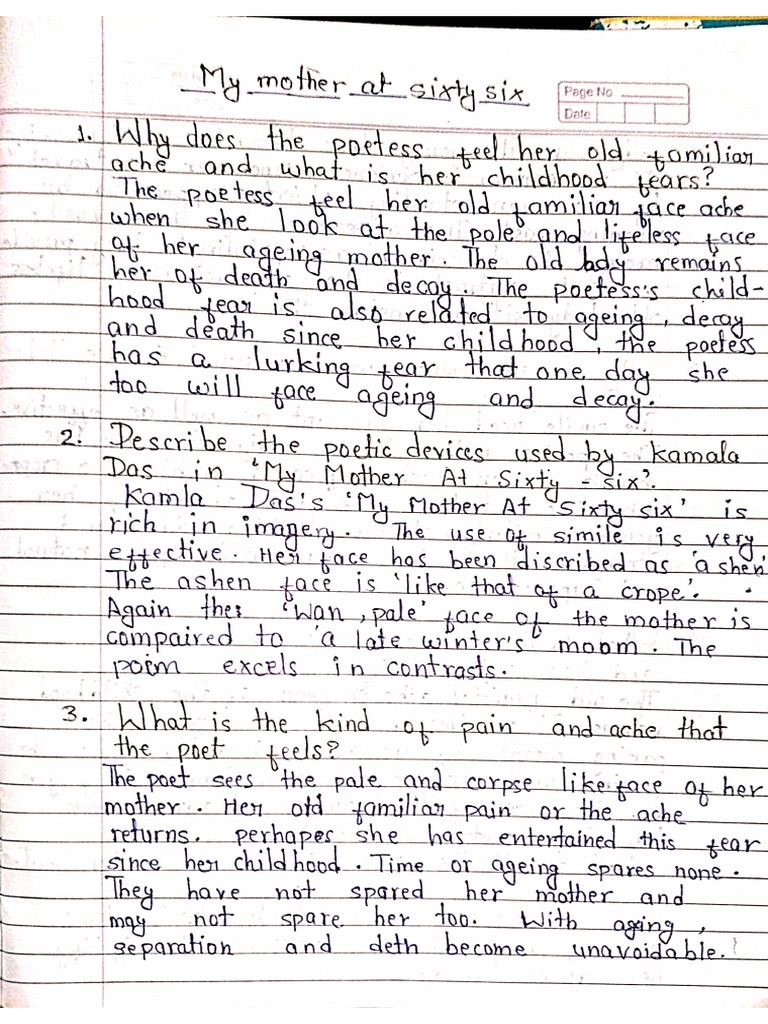 My mother at sixty six
Page No
Date
1. Why does the poetess feel her old familiar
ache and what is her childhood fears?
The poetess feel her old familiar face ache
when she look at the pole and lifeless face
of her ageing mother. The old bdy remains
her of death and decay. The poetess's child-
hood fear is also related to ageing, decay
and death since her childhood, the poetess
has a lurking fear that one day she
too will face ageing and decay.
2. Describe the poetic devices used by Kamala
Das in 'My Mother At Sixty - six'.
Kamla Das's 'My Mother At Sixty six' is
rich in imagery. The use of simile is very
effective. Her face has been discribed as 'ashen'
The ashen face is 'like that of a crope'.
Again the 'Wan, pale' face of the mother is
compaired to 'a late winter's' moom. The
poim excels in contrasts.
3. What is the kind of pain and ache that
the poet feels?
The poet sees the pale and corpse like face of her
mother. Her old familiar pain or the ache
returns. perhapes she has entertained this fear
since her childhood. Time or ageing spares none.
They have not spared her mother and
may not spare her too. With aging,
separation and deth become unavoidable.